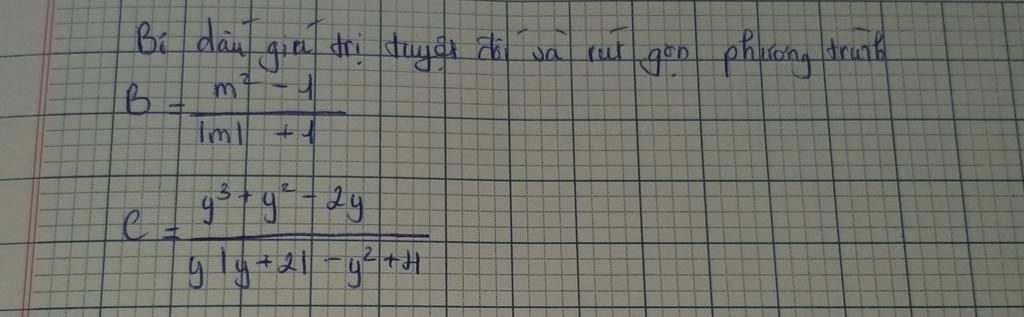 Bỏ dấu giá trị tuyệt đối và rút gọn phương trình
B = m² - 1 / |m| + 1
C = y³ + y² - 2y / y|y + 2| - y² + 4